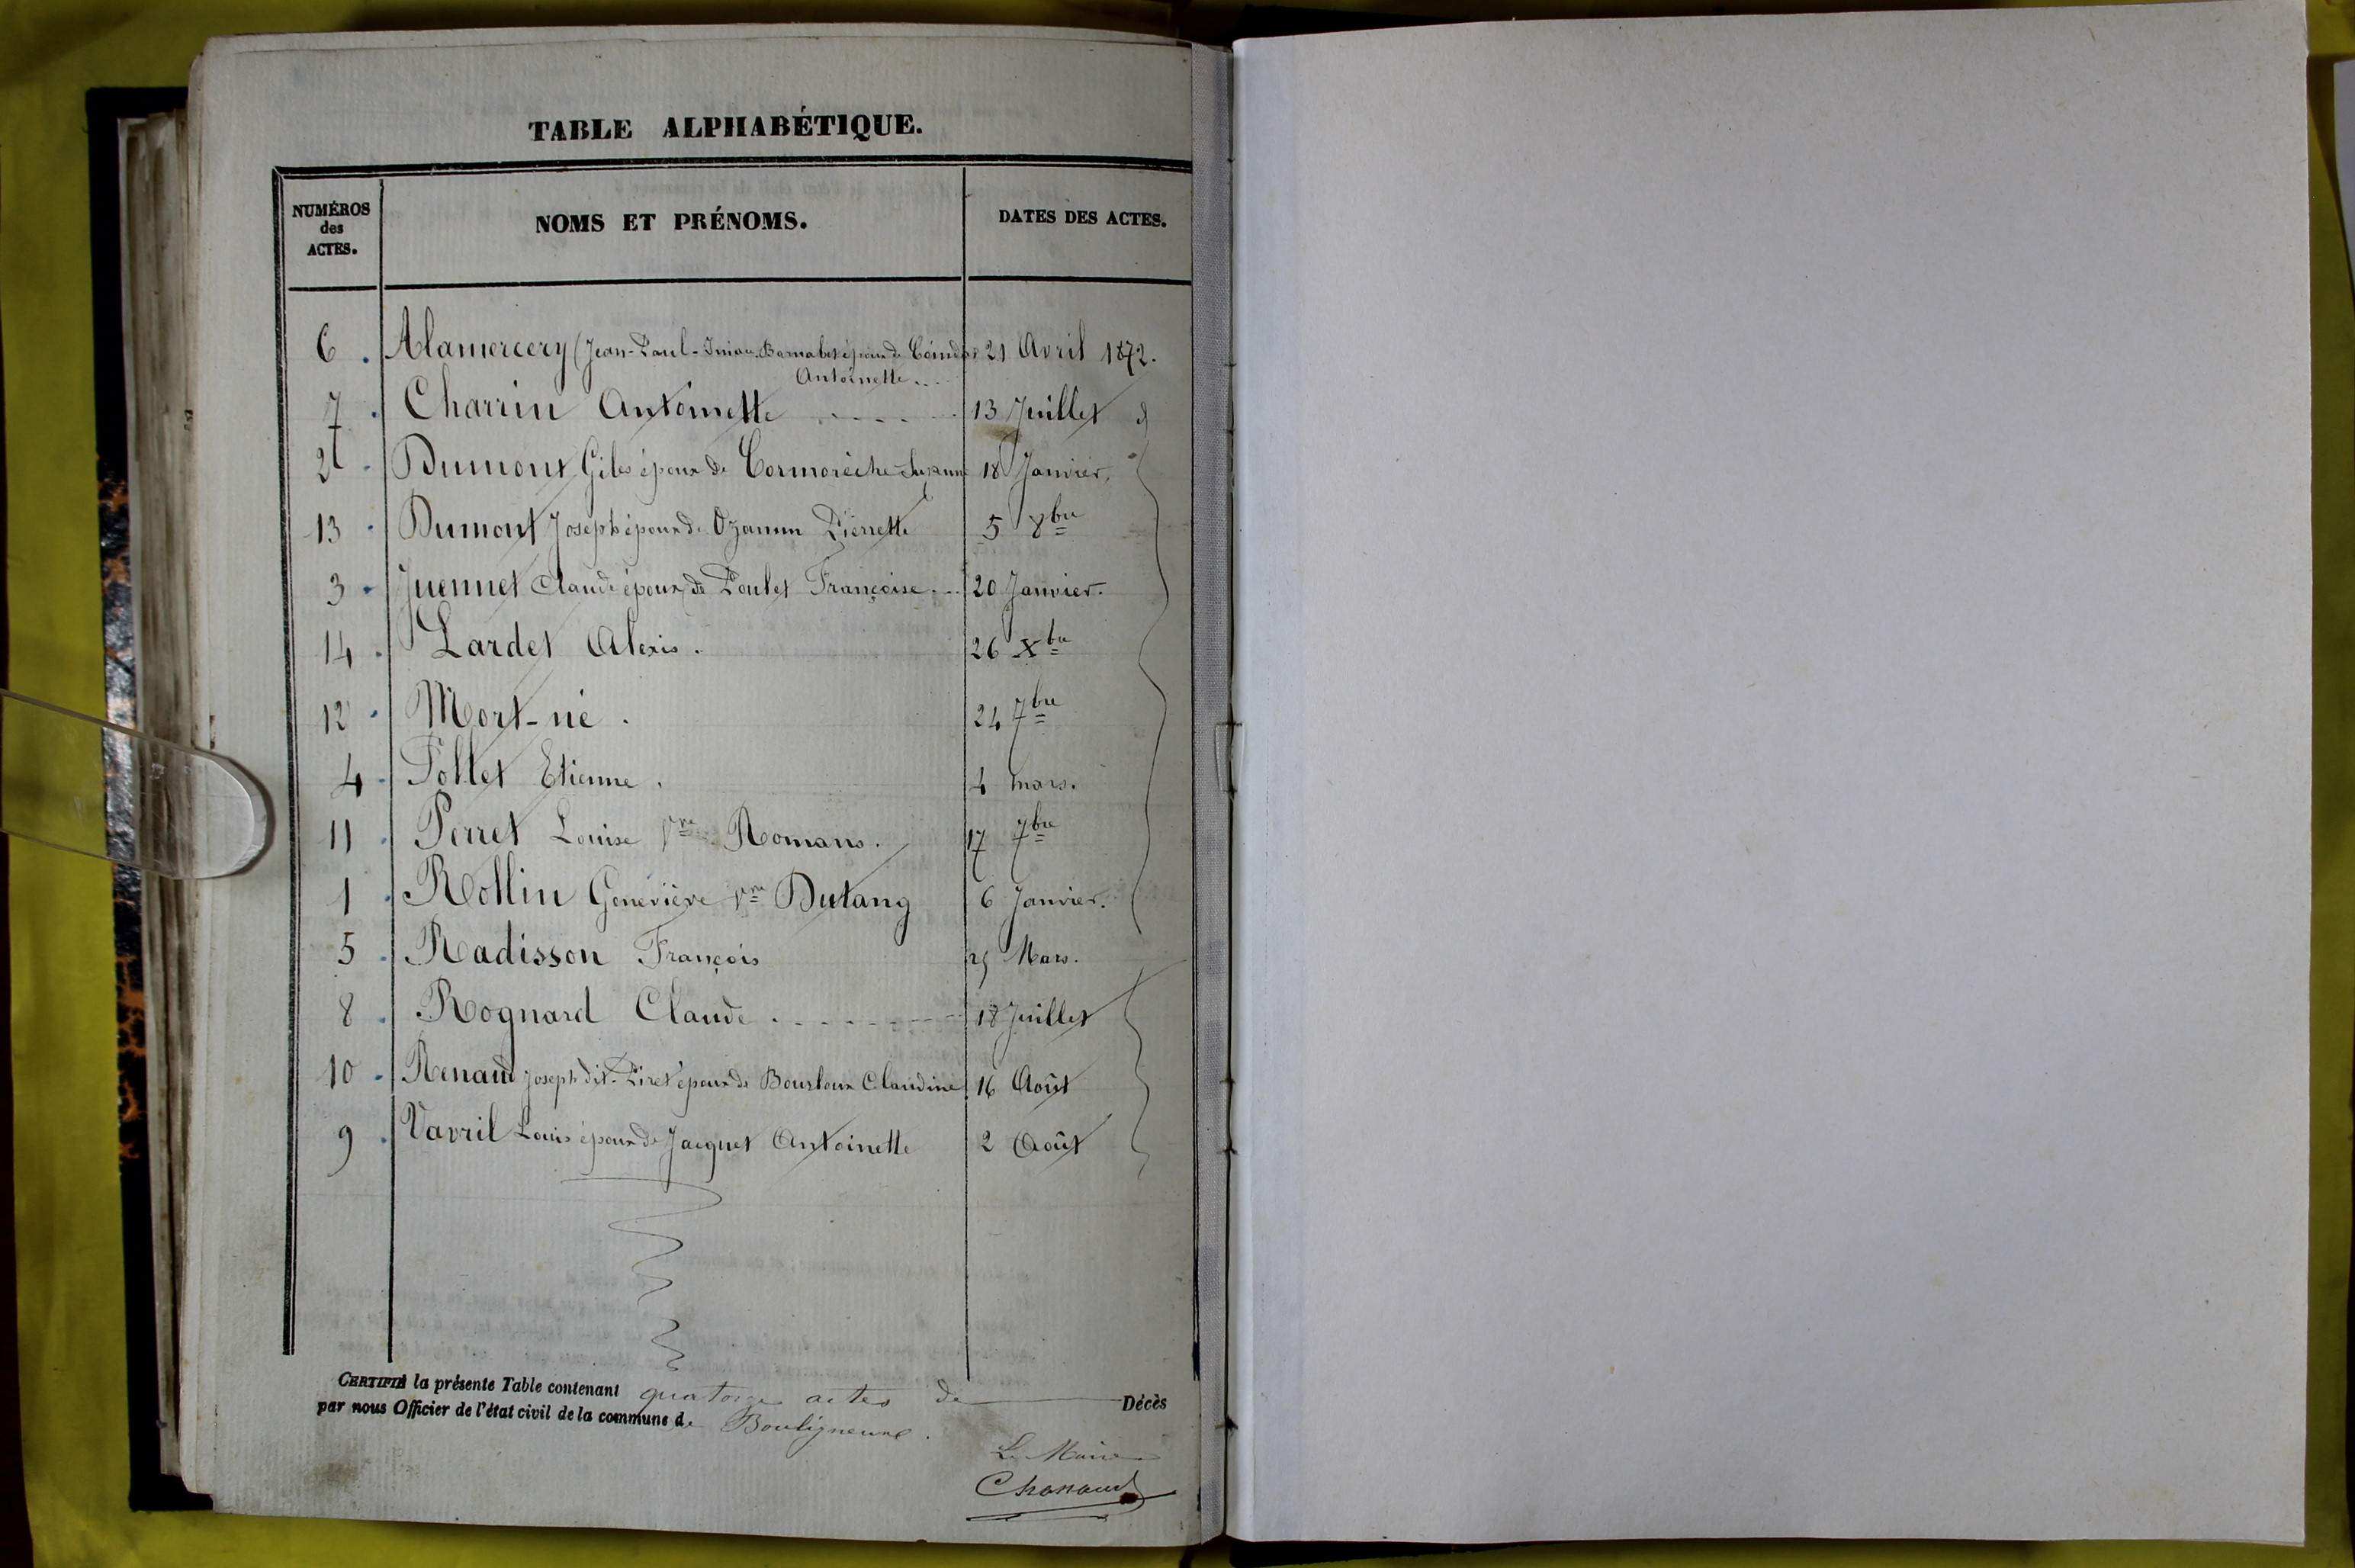 TABLE ALPHABÉTIQUE.
NUMÉROS des ACTES. NOMS ET PRÉNOMS. DATES DES ACTES.
6 . Alamercery (Jean-Paul- Barnabé époux de 21 Avril 1872.
Antoinette...
7 . Charrin Antoinette ..... 13 Juillet
2 . Dumont Giles époux de Cormorèche Suzanne 18 Janvier.
13 . Dumont Joseph époux de Ozanun Pierrette 5 8bre
3 . Juennet Claude époux de Poulet Françoise... 20 Janvier.
14 . Lardet Alexis. 26 Xbre
12 . Mort-né. 24 7bre
4 . Pollet Etienne. 4 mars.
11 . Perret Louise Vve Romans. 17 7bre
1 . Rollin Geneviève Vve Dutang 6 Janvier.
5 . Radisson François 25 Mars.
8 . Rognard Claude ......... 18 Juillet
10 . Renaud Joseph dit Piret époux de Claudine 16 Août
9 . Vavril Louis époux de Jacquet Antoinette 2 Août
CERTIFIÉ la présente Table contenant quatorze actes de Décès
par nous Officier de l'état civil de la commune de Bouligneux.
Le Maire
Chanaud